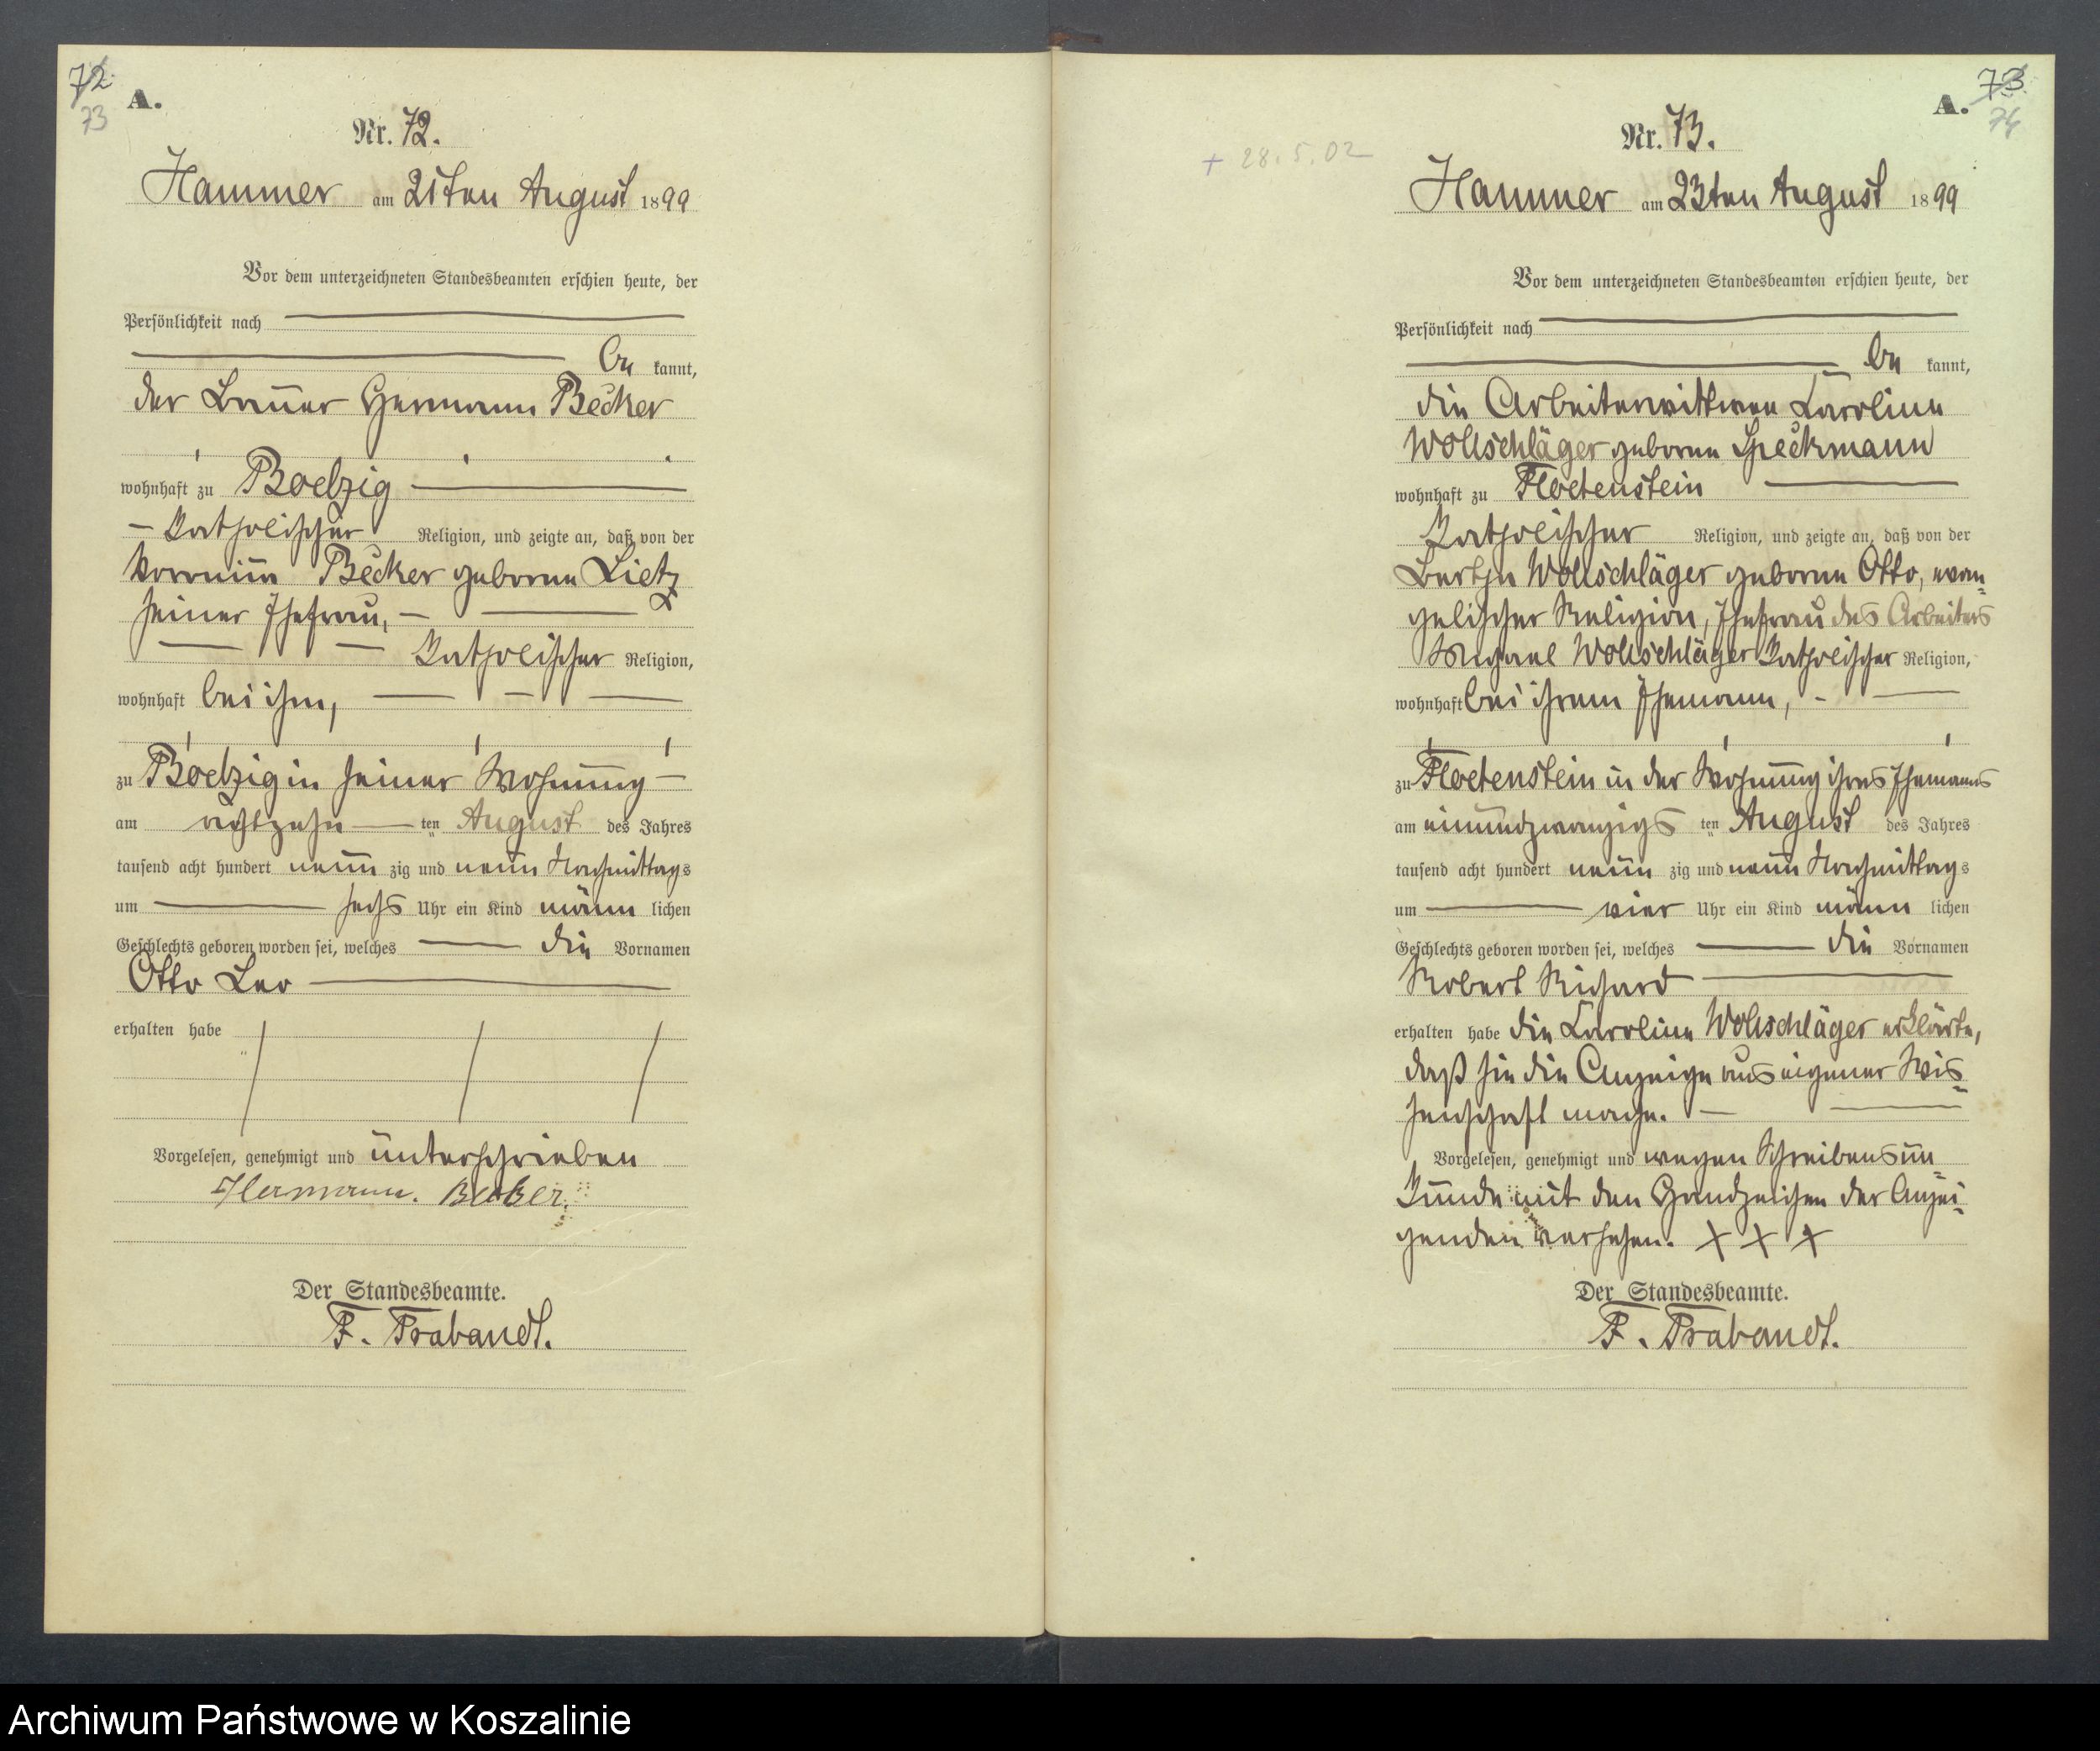 72.
73
A.
Nr. 72.
Hammer am 21ten August 1899
Vor dem unterzeichneten Standesbeamten erschien heute, der
Persönlichkeit nach
be kannt,
der Bauer Hermann Becker
wohnhaft zu Boelzig
katholischer Religion, und zeigte an, daß von der
Becker geborene Lietz
seiner Ehefrau,
katholischer Religion,
wohnhaft bei ihm,
zu Boelzig in seiner Wohnung
am achtzehn ten August des Jahres
tausend acht hundert neun zig und neun Nachmittags
um sechs Uhr ein Kind männ lichen
Geschlechts geboren worden sei, welches die Vornamen
Otto Leo
erhalten habe
Vorgelesen, genehmigt und unterschrieben
Hermann. Becker.
Der Standesbeamte.
F. Trabandt.
73.
74
A.
+ 28.5.02
Nr. 73.
Hammer am 23ten August 1899
Vor dem unterzeichneten Standesbeamten erschien heute, der
Persönlichkeit nach
be kannt,
die Arbeiterwittwe Karoline
Wollschläger geborene Speckmann
wohnhaft zu Floetenstein
katholischer Religion, und zeigte an, daß von der
Bertha Wollschläger geborene Otto, evan-
gelischer Religion, Ehefrau des Arbeiters
Michael Wollschläger katholischer Religion,
wohnhaft bei ihrem Ehemann,
zu Floetenstein in der Wohnung ihres Ehemanns
am einundzwanzigs ten August des Jahres
tausend acht hundert neun zig und neun Nachmittags
um vier Uhr ein Kind männ lichen
Geschlechts geboren worden sei, welches die Vornamen
Robert Richard
erhalten habe die Karoline Wollschläger erklärte,
daß sie die Anzeige aus eigener Wis-
senschaft mache.
Vorgelesen, genehmigt und wegen Schreibensun-
kunde mit den Handzeichen der Anzei-
genden versehen. X X X
Der Standesbeamte.
F. Trabandt.
Archiwum Państwowe w Koszalinie